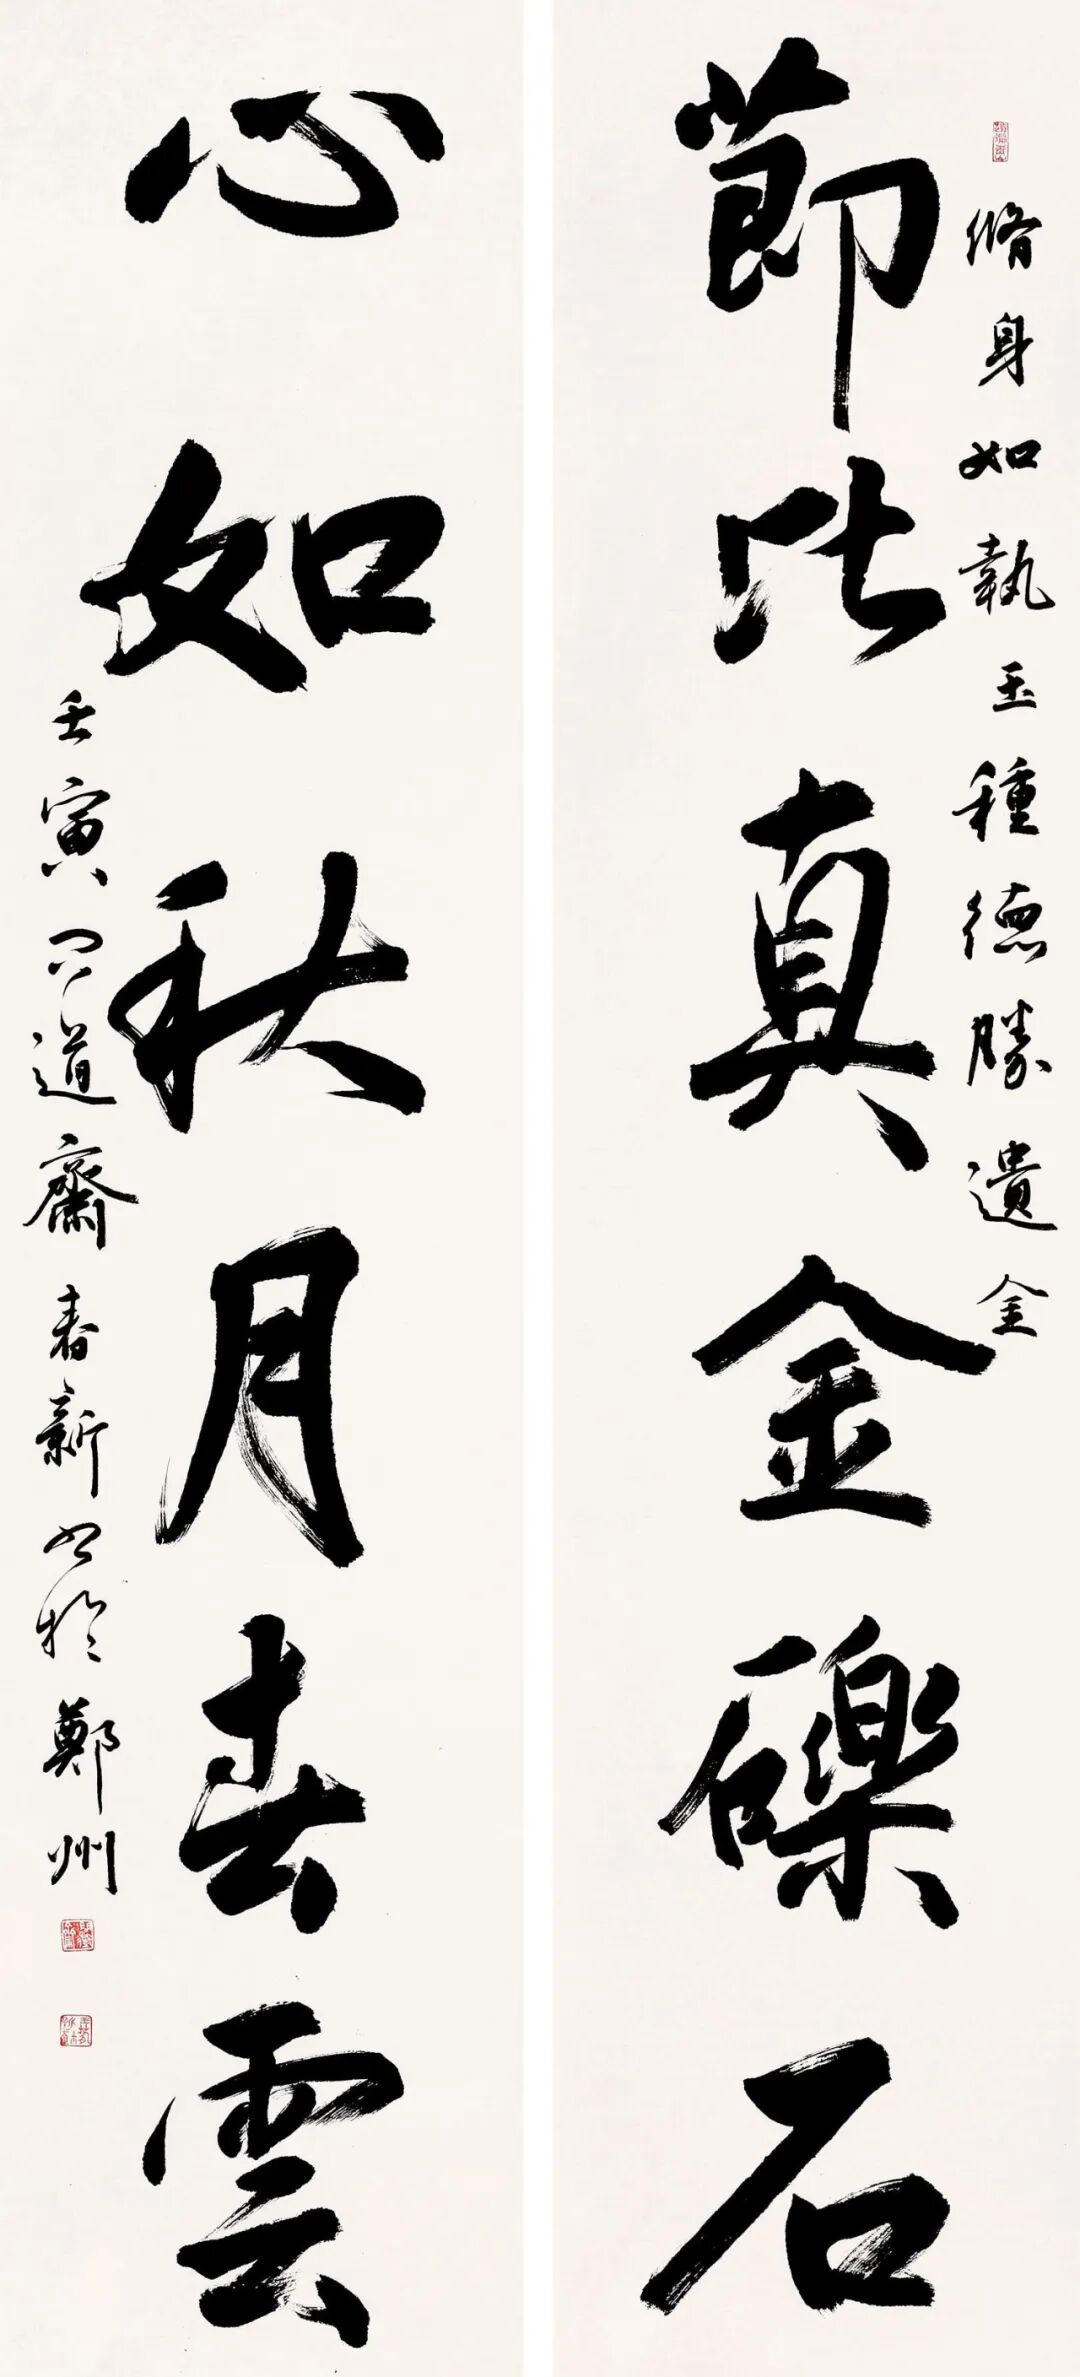 脩身如執玉種德勝遺金
節比真金礫石
心如秋月春雲
壬寅問道齋春新書於鄭州